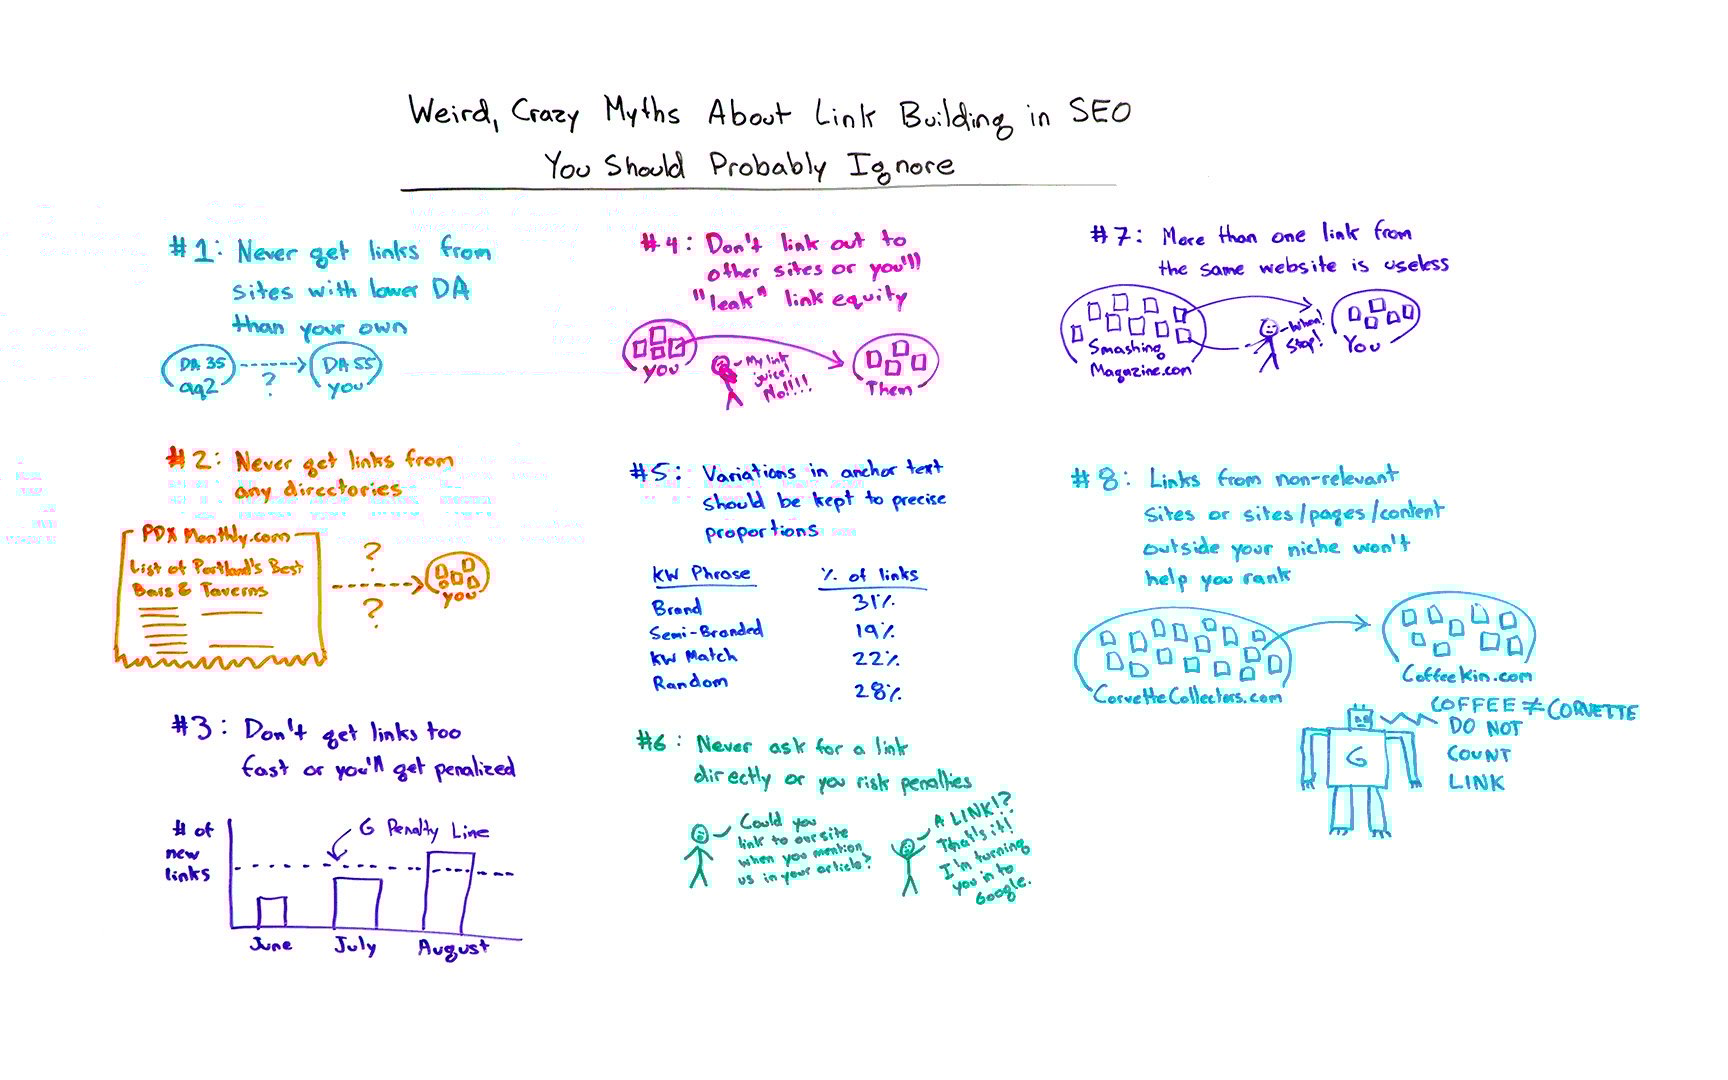 Weird, Crazy Myths About Link Building in SEO
You Should Probably Ignore
#1: Never get links from
sites with lower DA
than your own
DA 35
aq2
?
DA 55
you
#2: Never get links from
any directories
PDX Monthly.com
List of Portland's Best
Bars & Taverns
?
?
you
#3: Don't get links too
fast or you'll get penalized
# of
new
links
G Penalty Line
June
July
August
#4: Don't link out to
other sites or you'll
"leak" link equity
you
My link
juice!
No!!!!
Them
#5: Variations in anchor text
should be kept to precise
proportions
KW Phrase % of links
Brand 31%
Semi-Branded 19%
KW Match 22%
Random 28%
#6: Never ask for a link
directly or you risk penalties
Could you
link to our site
when you mention
us in your article?
A LINK!?
That's it!
I'm turning
you in to
Google.
#7: More than one link from
the same website is useless
Smashing
Magazine.com
Whoa!
Stop!
You
#8: Links from non-relevant
sites or sites/pages/content
outside your niche won't
help you rank
CorvetteCollectors.com
CoffeeKin.com
G
COFFEE ≠ CORVETTE
DO NOT
COUNT
LINK